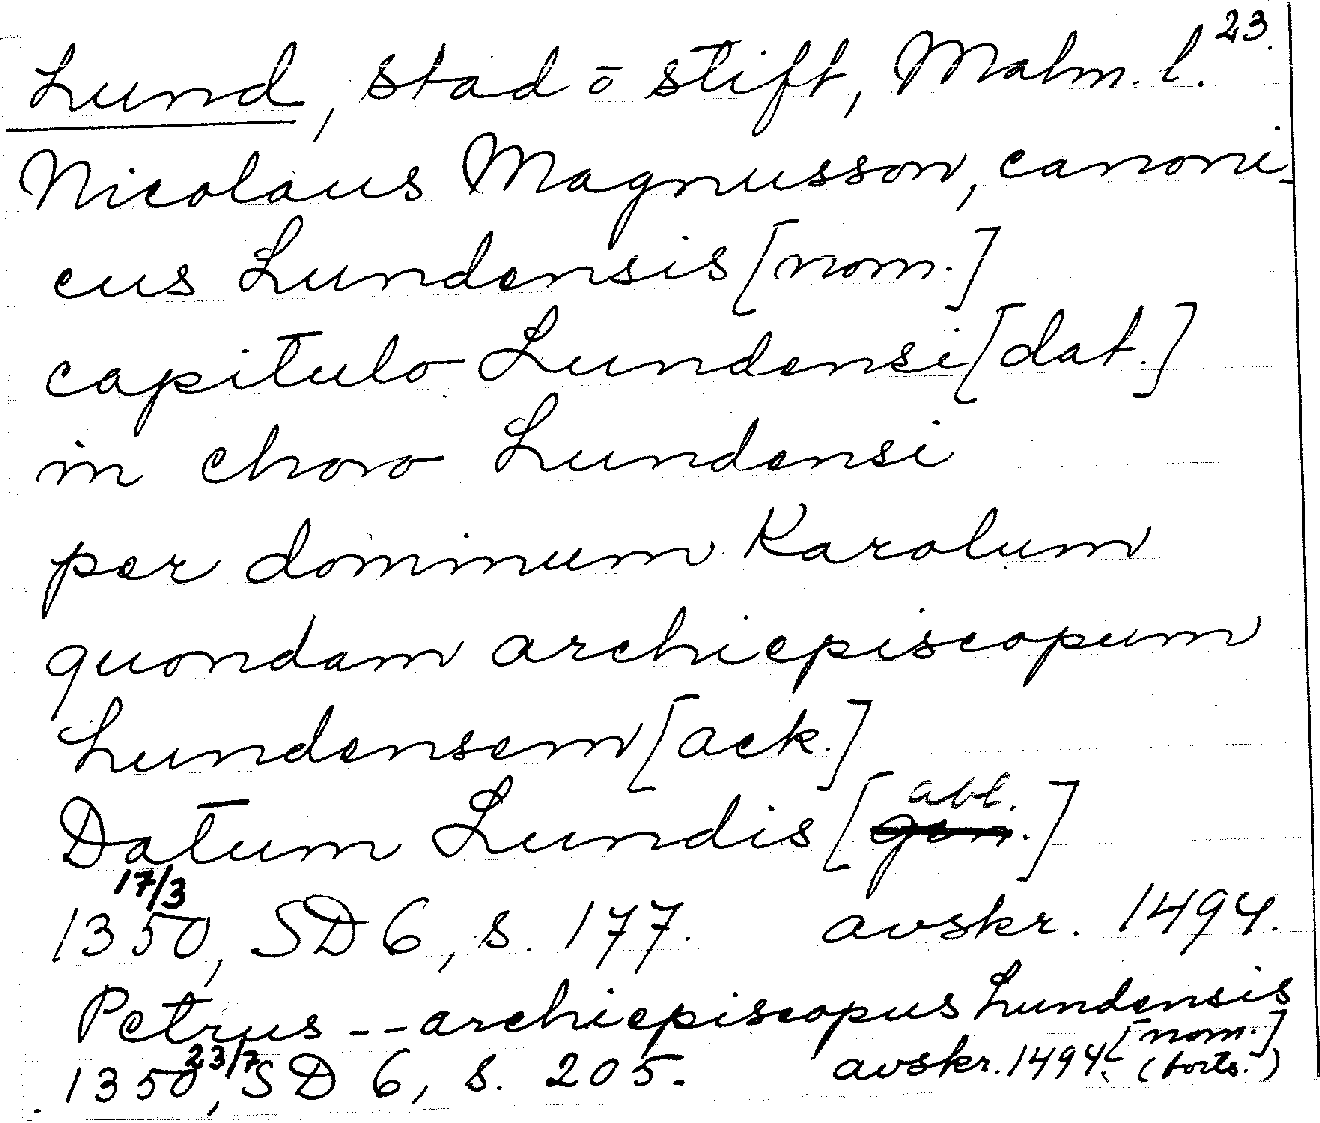 23.
Lund, stad o stift, Malm. l.
Nicolaus Magnusson, canoni-
cus Lundensis [nom.]
capitulo Lundensi [dat.]
in choro Lundensi
per dominum Karolum
quondam archiepiscopum
Lundensem [ack.]
Datum Lundis [gen. abl.]
1350 17/3, SD 6, s. 177. avskr. 1494.
Petrus -- archiepiscopus Lundensis [nom.]
1350 23/7, SD 6, s. 205. avskr. 1494. (forts.)